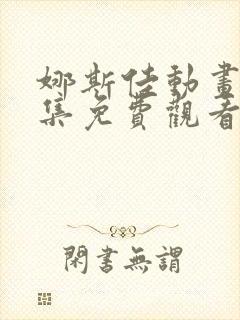 娜斯佳動畫
集免費觀看
閑書無謂